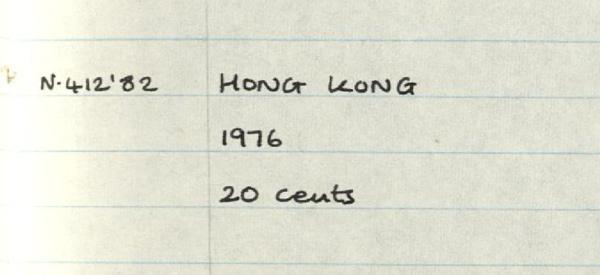 N.412'82 HONG KONG
1976
20 cents